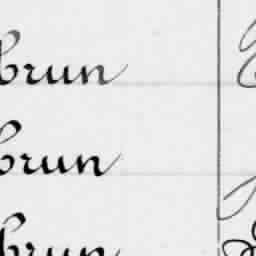 brun
brun
brun